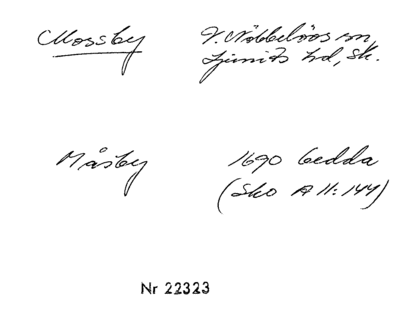 Mossby V. Nöbbelövs sn,
Ljunits hd, Sk.
Måsby 1690 Gedda
(Sko A II: 144)
Nr 22323